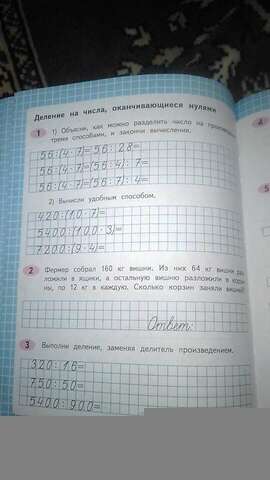 Деление на числа, оканчивающиеся нулями
1 1) Объясни, как можно разделить число на произведение
тремя способами, и закончи вычисления.
56:(4·7)=56:28=
56:(4·7)=(56:4):7=
56:(4·7)=(56:7):4=
2) Вычисли удобным способом.
420:(10·7)=
5400:(100·3)=
7200:(9·4)=
2 Фермер собрал 160 кг вишни. Из них 64 кг вишни раз
ложили в ящики, а остальную вишню разложили в корзи
ны, по 12 кг в каждую. Сколько корзин заняли вишней?
Ответ:
3 Выполни деление, заменяя делитель произведением.
320:16=
750:50=
5400:900=
4
5